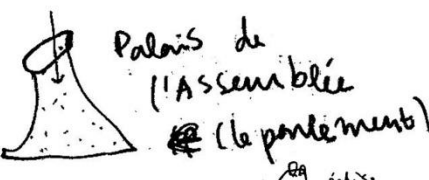 Palais de
l'Assemblée
(le parlement)